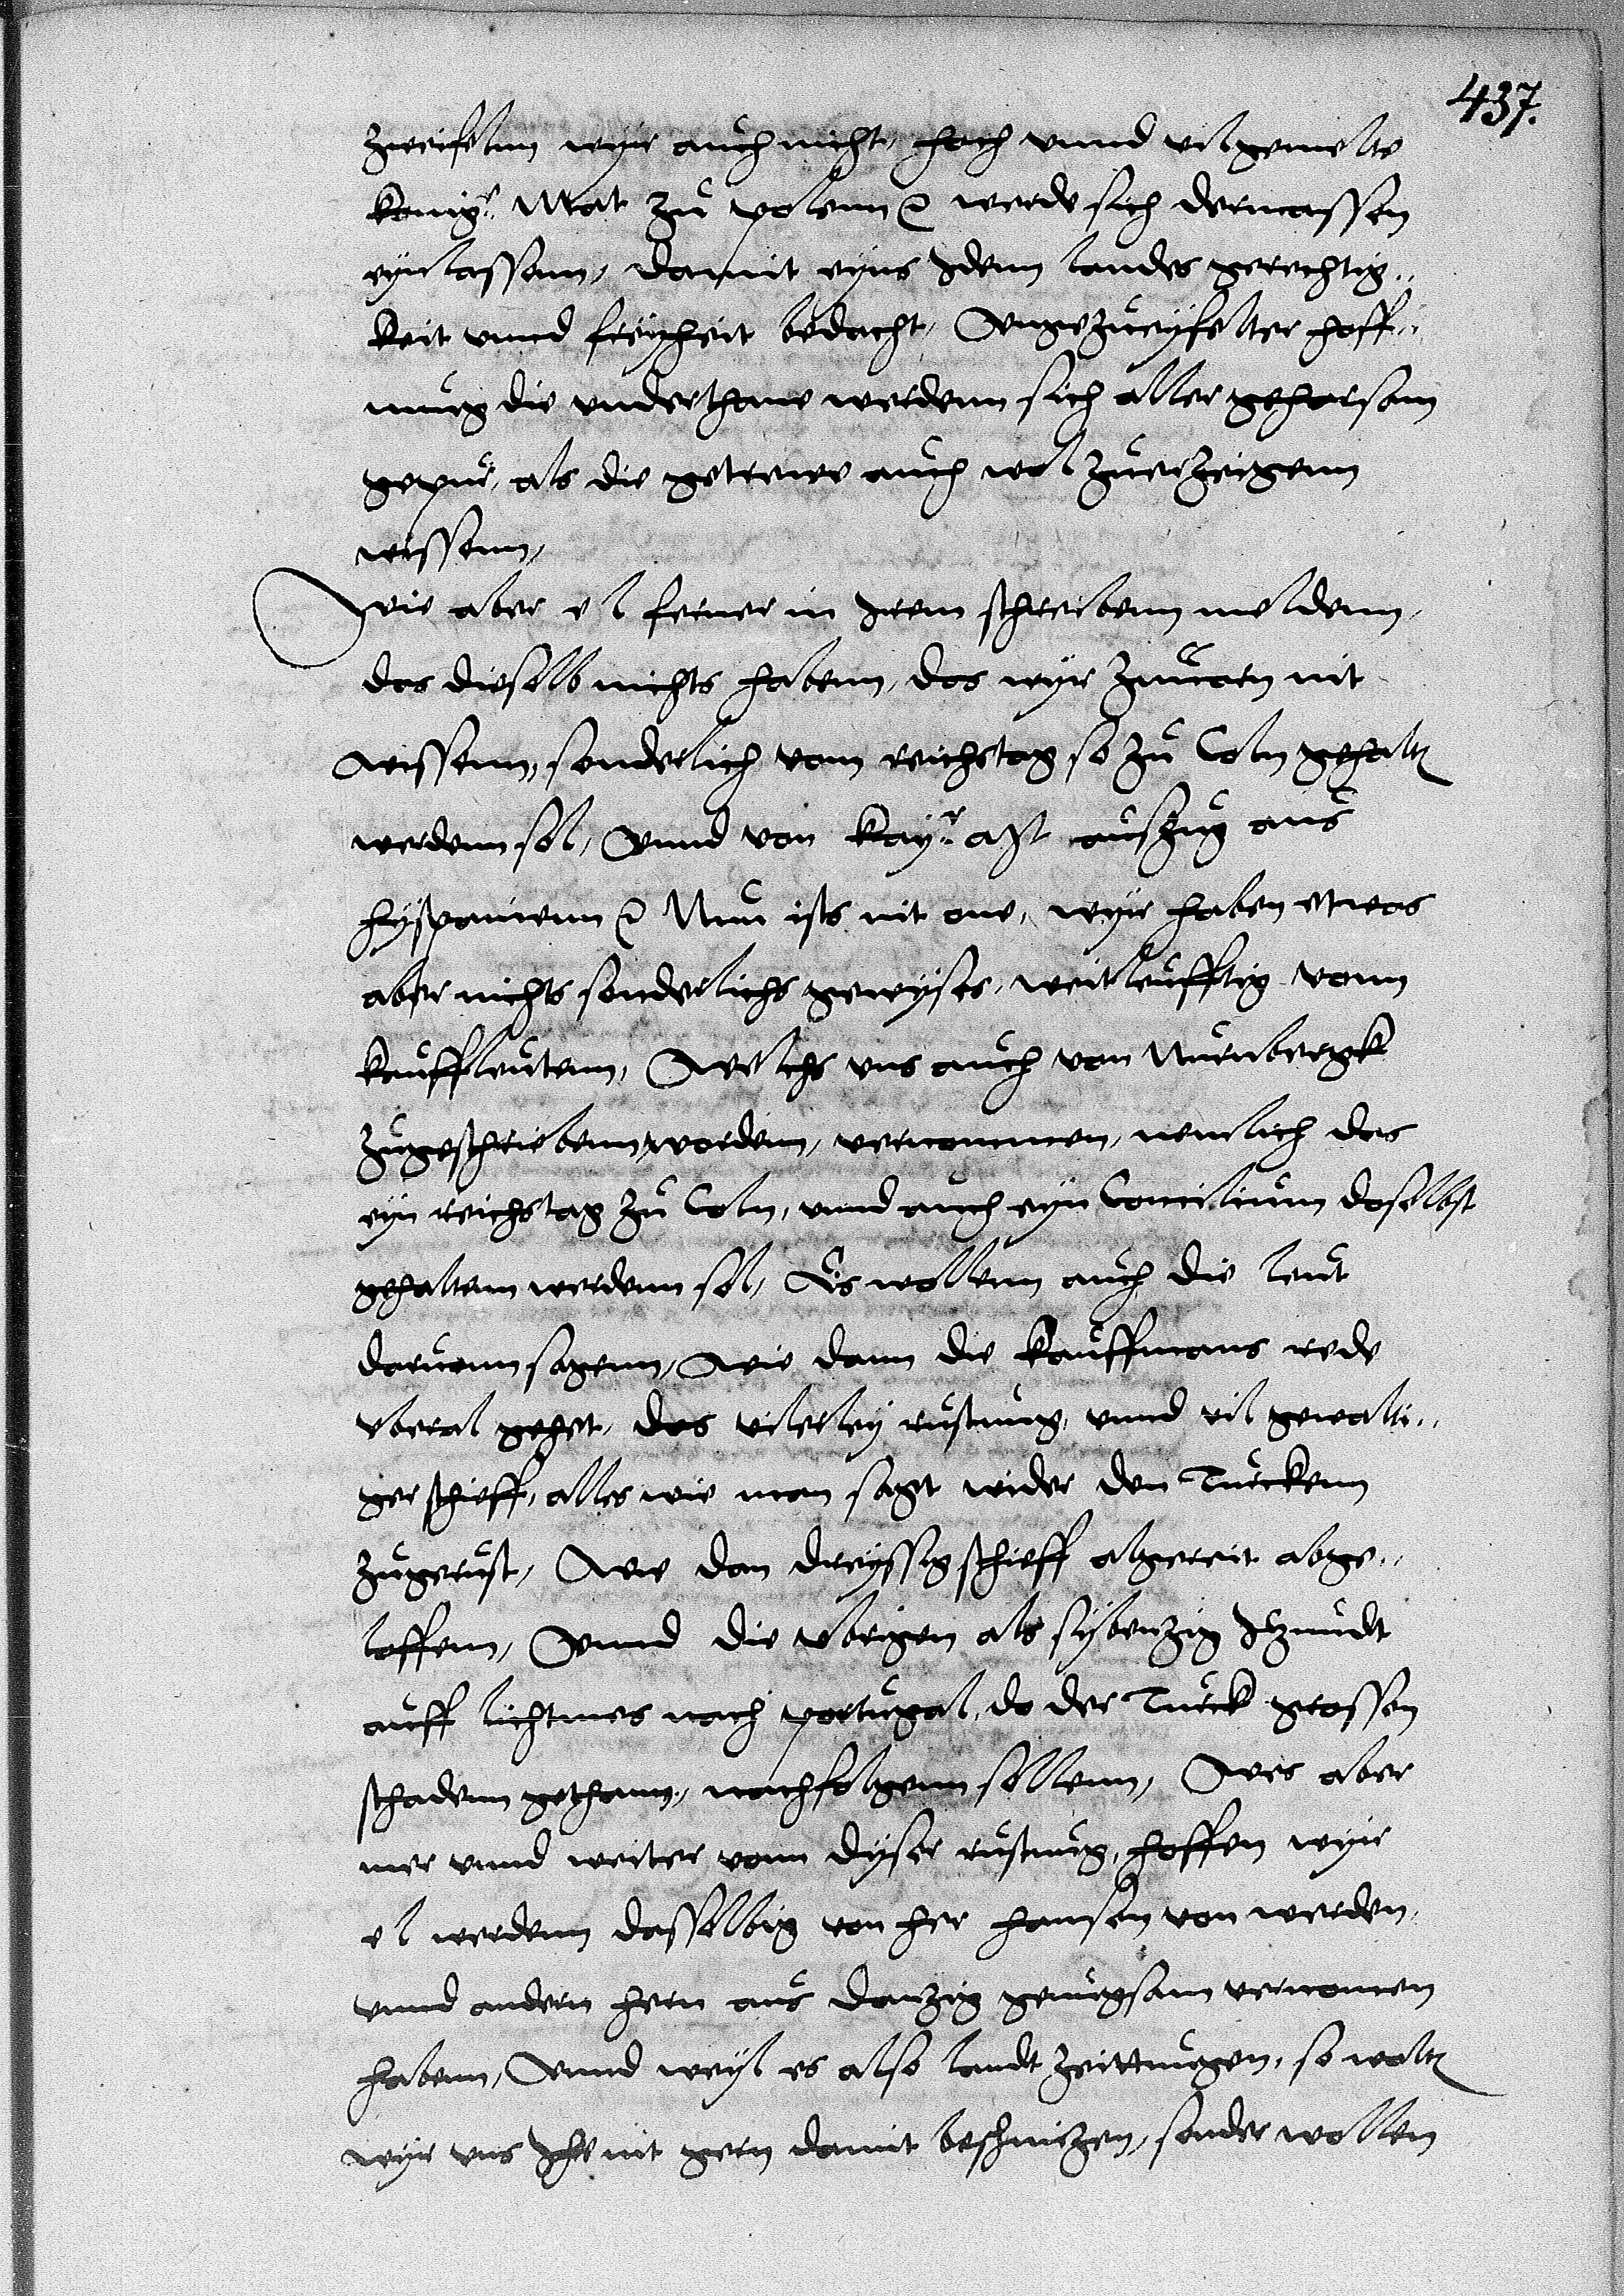 437.
zweifelnn wyr auch nicht, hoch vnnd vilgemelte
konigr. Mat zu polenn etc werde sich dermassen
eynlassenn, damit eyns Idenn landes gerechtig..
keit vnnd freyheit bedacht, Vngezweyfelter hoff..
nung die vnderthane werdenn sich aller gehorsam
gepur, als die getrewe auch wol zuerzeigenn
wissenn,
Wie aber e l ferner in Irem schreibenn meldenn,
das dieselb nichts habenn, das wyr zuuorn nit
wissenn, sonderlich vom reichstag so zu Coln gehaltn
werdenn sol, Vnnd von Kayr. Mt auszug aus
hyspanienn etc Nun ists nit one, wyr haben etwas
aber nichts sonderlichs gewyses, weitleufftig vonn
kauffleutenn, Welchs vns auch von Nurnbergk
zugeschriebenn wordenn, vernommen, nemlich das
eyn reichstag zu Coln, vnnd auch eyn Concilium doselbst
gehaltenn werdenn sol, Es wollenn auch die leut
daruonn sagenn, Wie dann die kauffmans rede
vberal gehet, das vilerley rustung, vnnd vil gewalti..
ger schieff, alles wie man sagt wider den Turckenn
zugerust, Wie dan dreyssig schieff algereit abge..
loffenn, Vnnd die vbrigen als sybenzig Izundt
auff lichtmes nach portugal, do der Turck grossen
schadenn gethann, nachfolgenn sollenn, Wes aber
mer vnnd weiter vonn dyser rustung, hoffen wyr
e l werdenn dasselbig von her hansen von werden,
vnnd andern hern aus danzig genugsam vernomen
habenn, Vnnd weyl es also landt zeittungen, so woltn
wyr vns Ihe nit gern damit beschmizen, sonder wollen